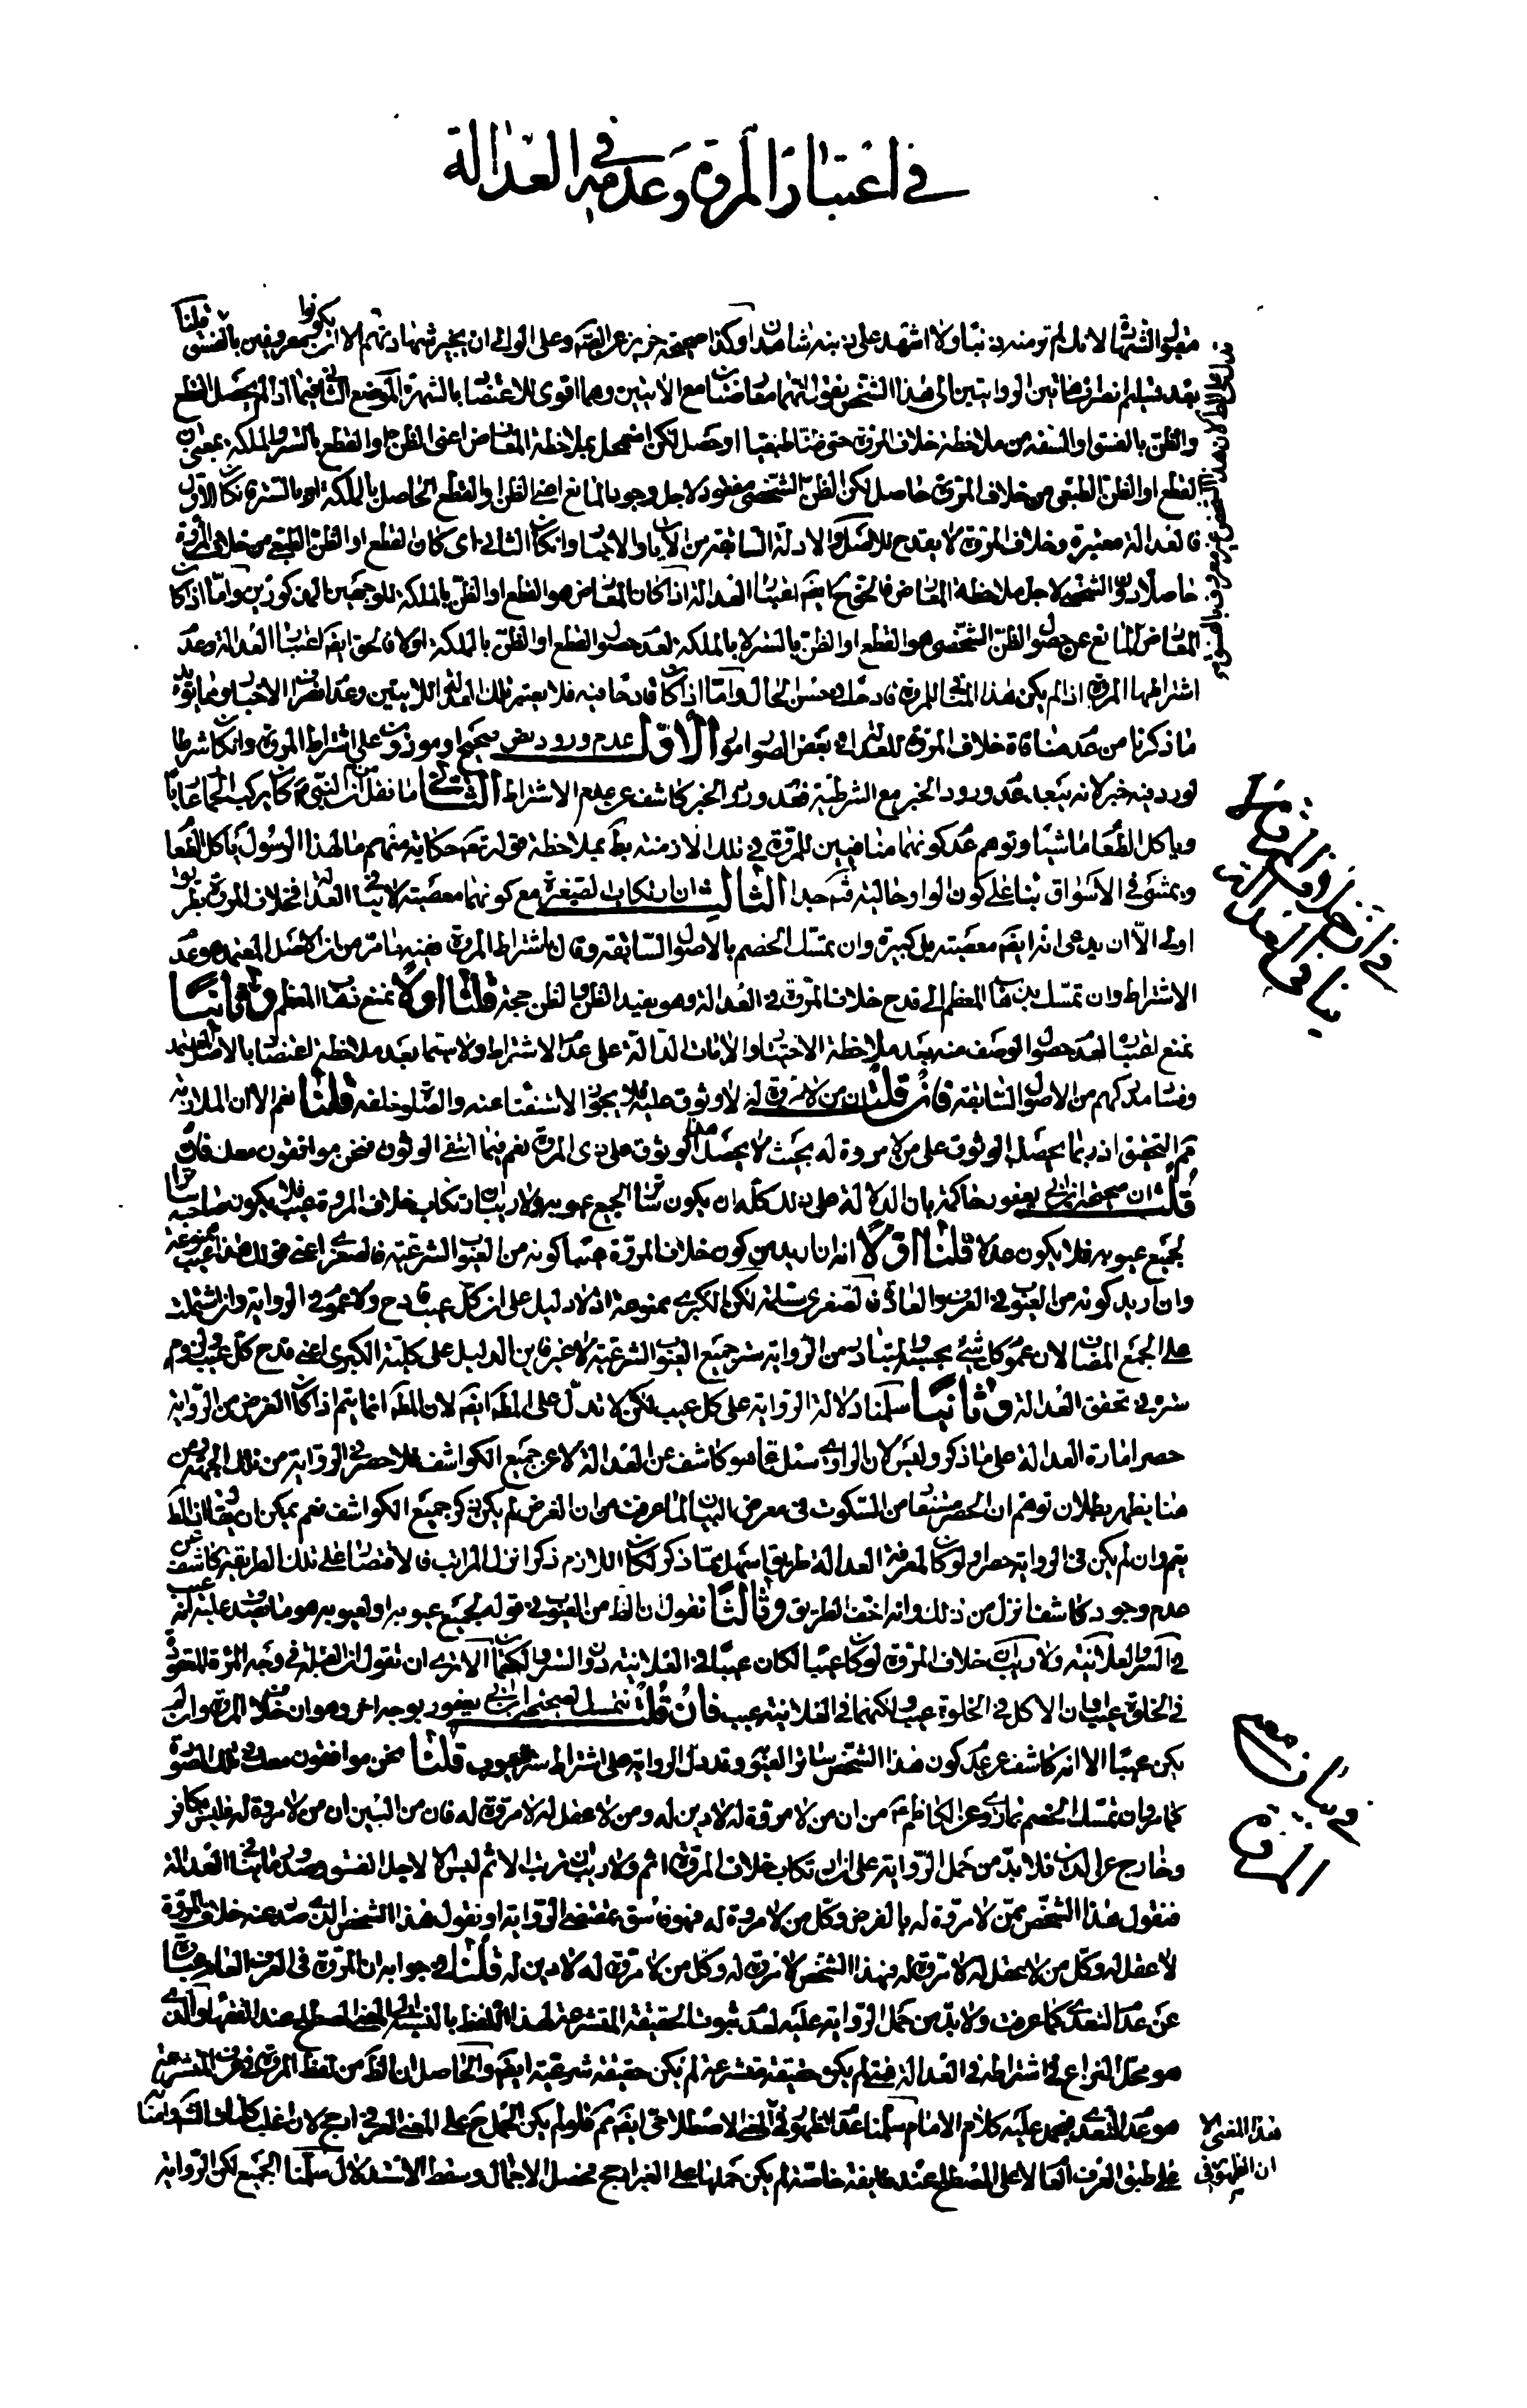 في اعتبار المروة وعدمه في العدالة
مقبول الشهادة لا تدل لم تر منه ذنبا ولا اشهد على ذنبه شاهدان وكذا صحيحة حريز عن ابيصير وعلى الوالي ان يجيز شهادتهم الا ان يكونوا معروفين بالفسق قلنا
بعد تسليم انصراف هاتين الروايتين الى هذا الشخص نقول انهما معارضتان مع الاتيتين وهما اقوى للاعتضاد بالشهرة الموضع الثاني فيما اذا لم يحصل القطع
والظن بالفسق او السفه من ملاحظة خلاف المروة حتى ظنا طبعيا او حصل لكن اضمحل بملاحظة المعارض اعني الظن او القطع بالستر والملكة بمعنى ان
القطع او الظن الطبعي من خلاف المروة حاصل لكن الظن الشخصي مفقود لاجل وجود المانع اعني الظن او القطع الحاصل بالملكة او بالستر فان كان الاول
فالعدالة معتبرة وخلاف المروة لا يقدح للاصل والادلة السابقة من الايات والاخبار وان كان الثاني اى كان القطع او الظن الطبعي من خلاف المروة
حاصلا دون الشخصي لاجل ملاحظة المعارض فالحق ح ايضا اعتبار العدالة اذا كان المعارض هو القطع او الظن بالملكة للوجهين المذكورين واما اذا كان
المعارض المانع عن حصول الظن الشخصي هو القطع او الظن بالستر لا بالملكة لعدم حصول القطع او الظن بالملكة اولا فالحق ايضا اعتبار العدالة وعدم
اشتراطها المروة اذ لم يكن هذا المنافي للمروة قادحا في حسن الحال واما اذا كان قادحا فيه فلا يعتبر تلك العدالة للاتيتين وعدم انصراف الاخبار ومما يؤيد
ما ذكرنا من عدم منافاة خلاف المروة للعدالة في بعض الصور امور الاول عدم ورود نص صحيح او موثوق على اشتراط المروة وان كان شرطا
لورد فيه خبر لانه يبعد عدم ورود الخبر مع الشرطية فعدم ورود الخبر كاشف عن عدم الاشتراط الثاني ما نقل من ان النبي ص كان يركب الحمار عاريا
وياكل الطعام ماشيا وتوهم عدم كونهما منافيين للمروة في تلك الازمنة بط بملاحظة قوله تعم حكاية منهم ما لهذا الرسول ياكل الطعام
ويمشي في الاسواق بناء على كون الواو حالية فتم جدا الثالث ان ارتكاب الصغيرة مع كونها معصية لا ينافي العدالة فخلاف المروة بطريق
اولى الا ان يدعى انه ايضا معصية بل كبيرة وان تمسك الخصم بالاصول السابقة وقال باشتراط المروة ففيه ما مر من ان الاصل المعتمد هو عدم
الاشتراط وان تمسك بذهاب المعظم الى قدح خلاف المروة في العدالة وهو يفيد الظن والظن حجة قلنا اولا نمنع ذهاب المعظم وثانيا
نمنع اعتباره لعدم حصول الوصف منه بعد ملاحظة الاخبار والامارات الدالة على عدم الاشتراط ولا سيما بعد ملاحظة اعتضادها بالاصل المعتمد
وفساد مدركهم من الاصول السابقة فان قلت ان من لا مروة له لا وثوق عليه فلا يجوز الاستفتاء عنه والصلوة خلفه قلنا نعم الا ان الملازمة
ثم التحقيق اذ ربما يحصل الوثوق على من لا مروة له بحيث لا يحصل الوثوق على ذي المروة نعم فيما انتفى الوثوق فنحن موافقون معك فان
قلت ان صحيحة ابن ابي يعفور حاكمة بان الدلالة على ذلك كله ان يكون ساترا لجميع عيوبه ولا ريب ان ارتكاب خلاف المروة عيب فلا يكون صاحبه ساترا
لجميع عيوبه فلا يكون عدلا قلنا اولا انه ان اريد من كون خلاف المروة عيبا كونه من العيوب الشرعية فالصغرى اعني قولك هذا عيب ممنوعة
وان اريد كونه من العيوب في العرف والعادة فالصغرى مسلمة لكن الكبرى ممنوعة اذ لا دليل على ان كل عيب قادح ولا عموم في الرواية وان اشتملت
على الجمع المضاف لان عموم كل شئ بحسبه والمتبادر من الرواية ستر جميع العيوب الشرعية لا غير فاين الدليل على كلية الكبرى اعني قدح كل عيب ولزوم
ستره في تحقق العدالة وثانيا سلمنا دلالة الرواية على كل عيب لكن لا تدل على المط ايضا لان المط انما يتم اذا كان الغرض من الرواية
حصر امارة العدالة على ما ذكر وليس لان الراوي سئل عما هو كاشف عن العدالة لا عن جميع الكواشف فلا حصر في الرواية من تلك الجهة ومن
هنا يظهر بطلان توهم ان الحصر مستفاد من السكوت في معرض البيان لما عرفت من ان الغرض لم يكن ذكر جميع الكواشف نعم يمكن ان يقال ان المط
يتم وان لم يكن في الرواية حصر ولو كان لمعرفة العدالة طريق اسهل مما ذكر لكان اللازم ذكر انزل المراتب فالاقتصار على تلك الطريقة كاشف عن
عدم وجود كاشف انزل من ذلك وانه اخف الطريق وثالثا نقول ان الظ من العيوب في قوله لجميع عيوبه او لعيوبه هو ما يصدق عليه انه عيب
في السر والعلانية ولا ريب ان خلاف المروة لو كان عيبا لكان عيبا في العلانية دون السر الا ترى ان تقول ان القبلة في وجه المرئة المعقودة
في الخلوة عيب او ان الاكل في الخلوة عيب ولكنهما في العلانية عيب فان قلت نتمسك بصحيحة ابن ابي يعفور بوجه اخر وهو ان خلاف المروة وان لم
يكن عيبا الا انه كاشف عن عدم كون هذا الشخص ساترا لعيوبه وقد دل الرواية على اشتراط ستر العيوب قلنا نحن موافقون معك في تلك الصورة
كما مر وان تمسك الخصم بما روي عن الكاظم ع من ان من لا مروة له لا دين له ومن لا عقل له لا مروة له فان من البين ان من لا مروة له فليس بكافر
وخارج عن الدين فلا بد من حمل الرواية على ان ارتكاب خلاف المروة اثم ولا ريب ان ترتب الاثم ليس الا لاجل الفسق وصدور ما ينافي العدالة
فنقول هذا الشخص ممن لا مروة له بالفرض وكل من لا مروة له فهو فاسق بمقتضى الرواية او نقول هذا الشخص الذي صدر عنه خلاف المروة
لا عقل له وكل من لا عقل له لا مروة له فهذا الشخص لا مروة له وكل من لا مروة له لا دين له قلنا في جوابه ان المروة في العرف العام عبارة
عن عدم التعدي كما عرفت ولا بد من حمل الرواية عليه لعدم ثبوت الحقيقة المتشرعة لهذا اللفظ بالنسبة الى المعنى المصطلح عند الفقهاء الذي
هو محل النزاع في اشتراطه في العدالة فمتى لم يكن حقيقة متشرعة لم يكن حقيقة شرعية ايضا والحاصل ان الظ من لفظ المروة في عرف المتشرعة
هو عدم التعدي فيحمل عليه كلام الامام سلمنا عدم الظهور في المعنى الاصطلاحي ايضا ثم فلو لم يكن الحمل ح على المعنى العرفي ارجح لان اغلب كلمات الشرع وامنائه
على طبق العرف العام لا على المصطلح عند طايفة خاصة لم يكن حملها على الغير ارجح فيحصل الاجمال وسقط الاستدلال سلمنا الجميع لكن الرواية
في ان خلاف المروة
ينافي العدالة
في بيان معنى
المروة
هذا المعنى الا
ان الظهور في